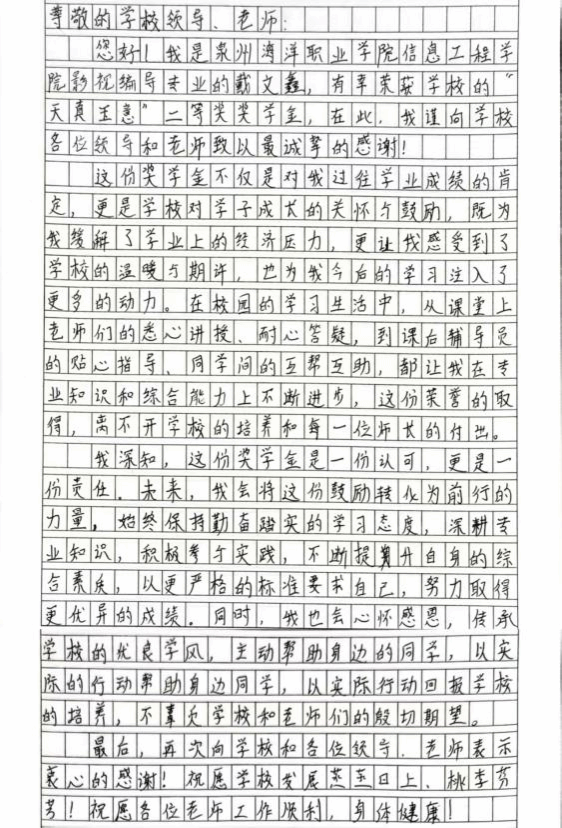 尊敬的学校领导、老师：
您好！我是泉州海洋职业学院信息工程学
院影视编导专业的戴文鑫，有幸荣获学校的“
天真玉意”二等奖奖学金，在此，我谨向学校
各位领导和老师致以最诚挚的感谢！
这份奖学金不仅是对我过往学业成绩的肯
定，更是学校对学子成长的关怀与鼓励，既为
我缓解了学业上的经济压力，更让我感受到了
学校的温暖与期许，也为我今后的学习注入了
更多的动力。在校园的学习生活中，从课堂上
老师们的悉心讲授、耐心答疑，到课后辅导员
的贴心指导、同学间的互帮互助，都让我在专
业知识和综合能力上不断进步，这份荣誉的取
得，离不开学校的培养和每一位师长的付出。
我深知，这份奖学金是一份认可，更是一
份责任．未来，我会将这份鼓励转化为前行的
力量，始终保持勤奋踏实的学习态度，深耕专
业知识，积极参与实践，不断提升自身的综
合素质，以更严格的标准要求自己，努力取得
更优异的成绩．同时，我也会心怀感恩，传承
学校的优良学风，主动帮助身边的同学，以实
际的行动帮助身边同学，以实际行动回报学校
的培养，不辜负学校和老师们的殷切期望。
最后，再次向学校和各位领导、老师表示
衷心的感谢！祝愿学校发展蒸蒸日上、桃李芬
芳！祝愿各位老师工作顺利，身体健康！